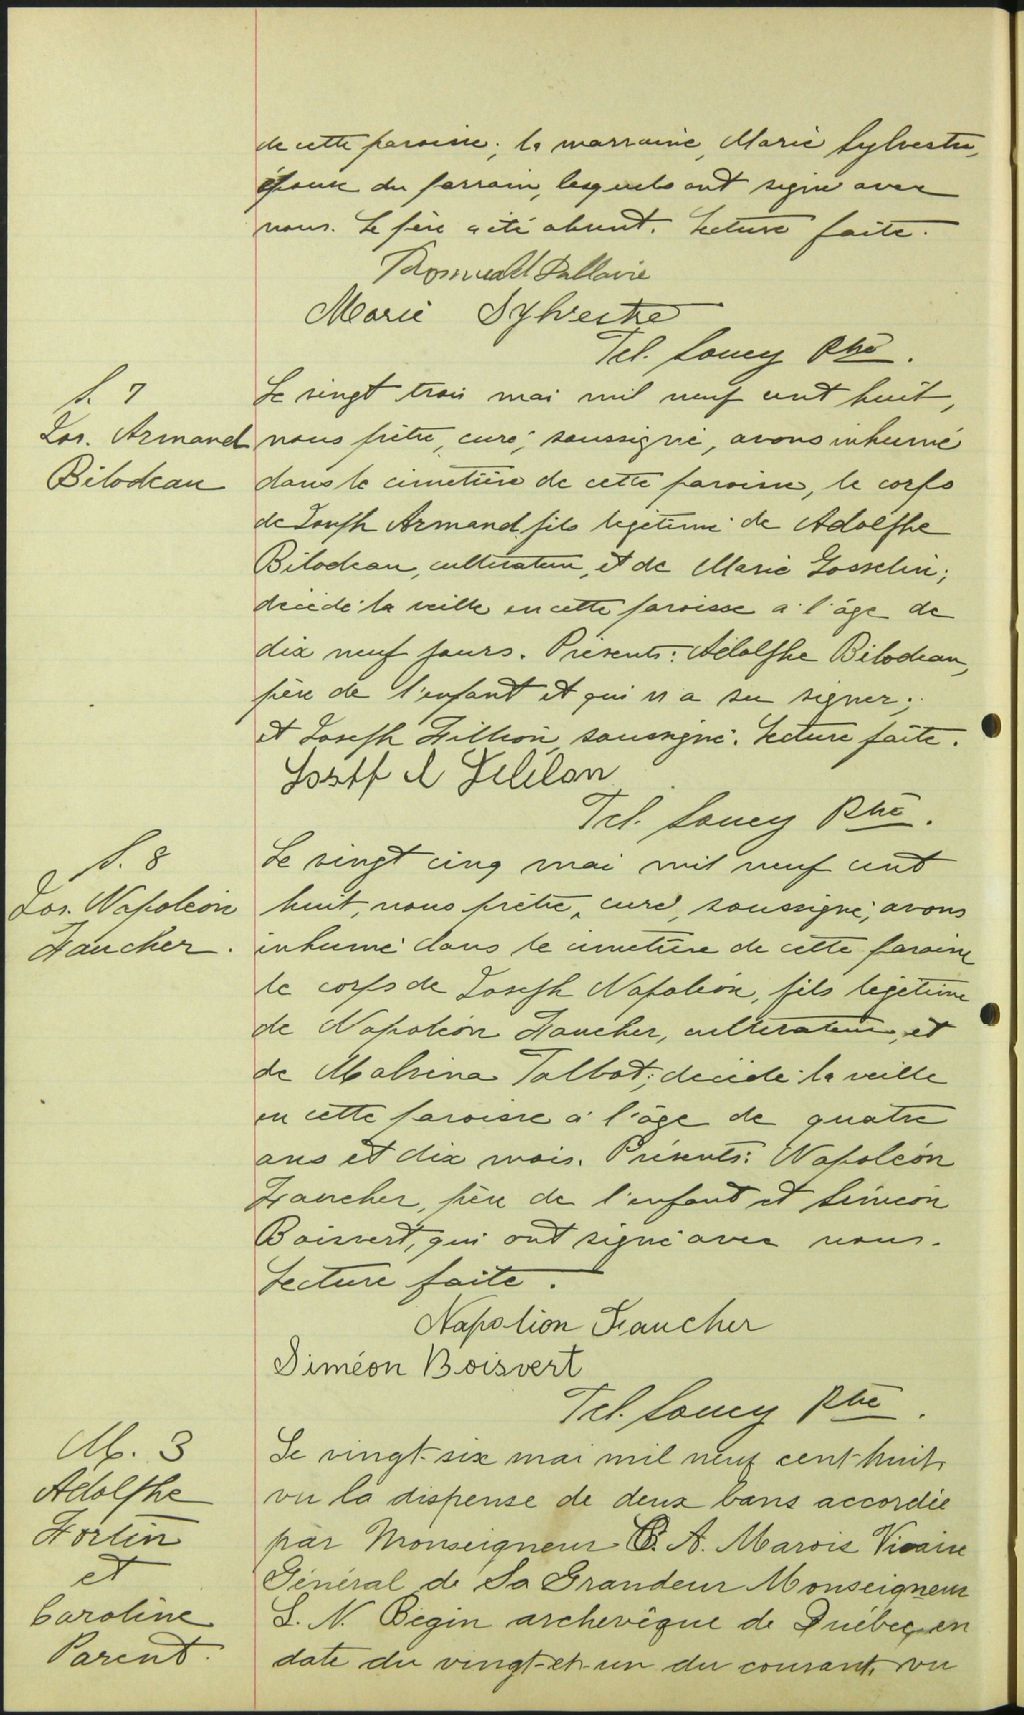 de cette paroisse; la marraine, Marie Sylvestre,
épouse du parrain, lesquels ont signé avec
nous. Le père a été absent. Lecture faite.
Marie Sylvestre
Tel. Soucy Ptre.
S. 7
Jos. Armand
Bilodeau
Le vingt trois mai mil neuf cent huit,
nous prêtre, curé, soussigné, avons inhumé
dans le cimetière de cette paroisse, le corps
de Joseph Armand fils légitime de Adolphe
Bilodeau, cultivateur, et de Marie Gosselin;
décédé la veille en cette paroisse à l'âge de
dix neuf jours. Présents: Adolphe Bilodeau,
père de l'enfant et qui n'a su signer;
et Joseph Fillion, soussigné. Lecture faite.
Tel. Soucy Ptre.
S. 8
Jos. Napoléon
Faucher.
Le vingt cinq mai mil neuf cent
huit, nous prêtre, curé, soussigné, avons
inhumé dans le cimetière de cette paroisse
le corps de Joseph Napoléon, fils légitime
de Napoléon Faucher, cultivateur, et
de Malvina Talbot; décédé la veille
en cette paroisse à l'âge de quatre
ans et dix mois. Présents: Napoléon
Faucher, père de l'enfant et Siméon
Boisvert, qui ont signé avec nous.
Lecture faite.
Napolion Faucher
Siméon Boisvert
Tel. Soucy Ptre.
M. 3
Adolphe
Fortin
et
Caroline
Parent.
Le vingt-six mai mil neuf cent huit,
vu la dispense de deux bans accordée
par Monseigneur C. A. Marois Vicaire
Général de Sa Grandeur Monseigneur
L. N. Bégin archevêque de Québec, en
date du vingt-et-un du courant, vu